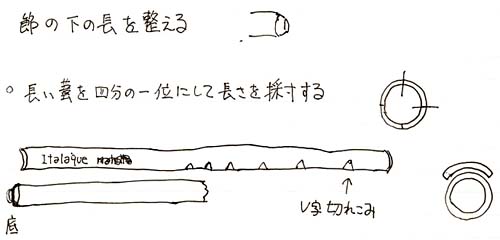 節の下の長を整える
○ 長い葦を四分の一位にして長さを採寸する
Italaque
V字切れこみ
底